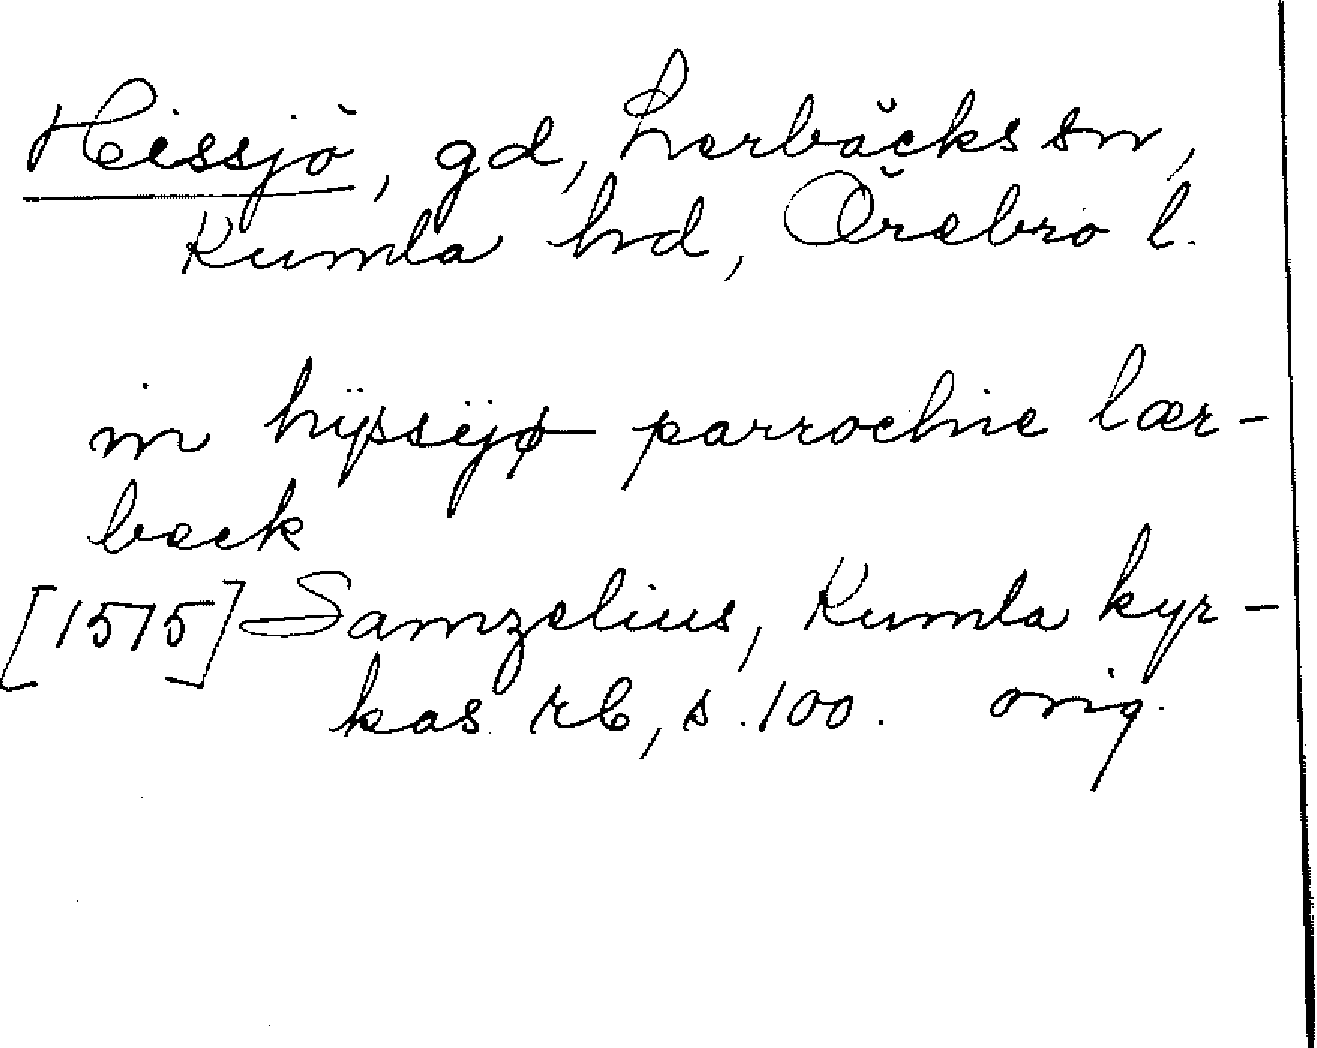 Hissjö, gd, Lerbäcks sn,
Kumla hd, Örebro l.
in hÿssÿø parrochie lær-
beck
[1575] Samzelius, Kumla kyr-
kas rb, s. 100. orig.